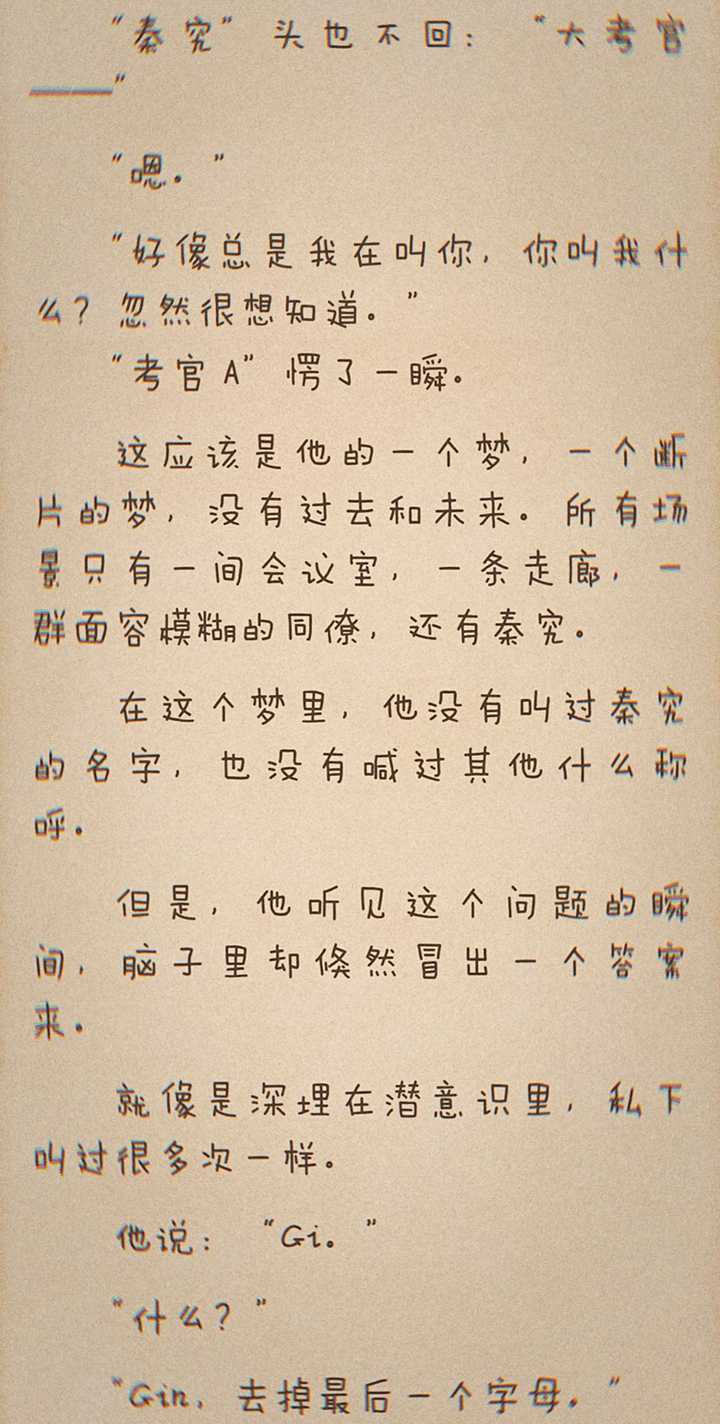 “秦究”头也不回：“大考官
——”
“嗯。”
“好像总是我在叫你，你叫我什
么？忽然很想知道。”
“考官A”愣了一瞬。
这应该是他的一个梦，一个断
片的梦，没有过去和未来。所有场
景只有一间会议室，一条走廊，一
群面容模糊的同僚，还有秦究。
在这个梦里，他没有叫过秦究
的名字，也没有喊过其他什么称
呼。
但是，他听见这个问题的瞬
间，脑子里却倏然冒出一个答案
来。
就像是深埋在潜意识里，私下
叫过很多次一样。
他说：“Gi。”
“什么？”
“Gin，去掉最后一个字母。”